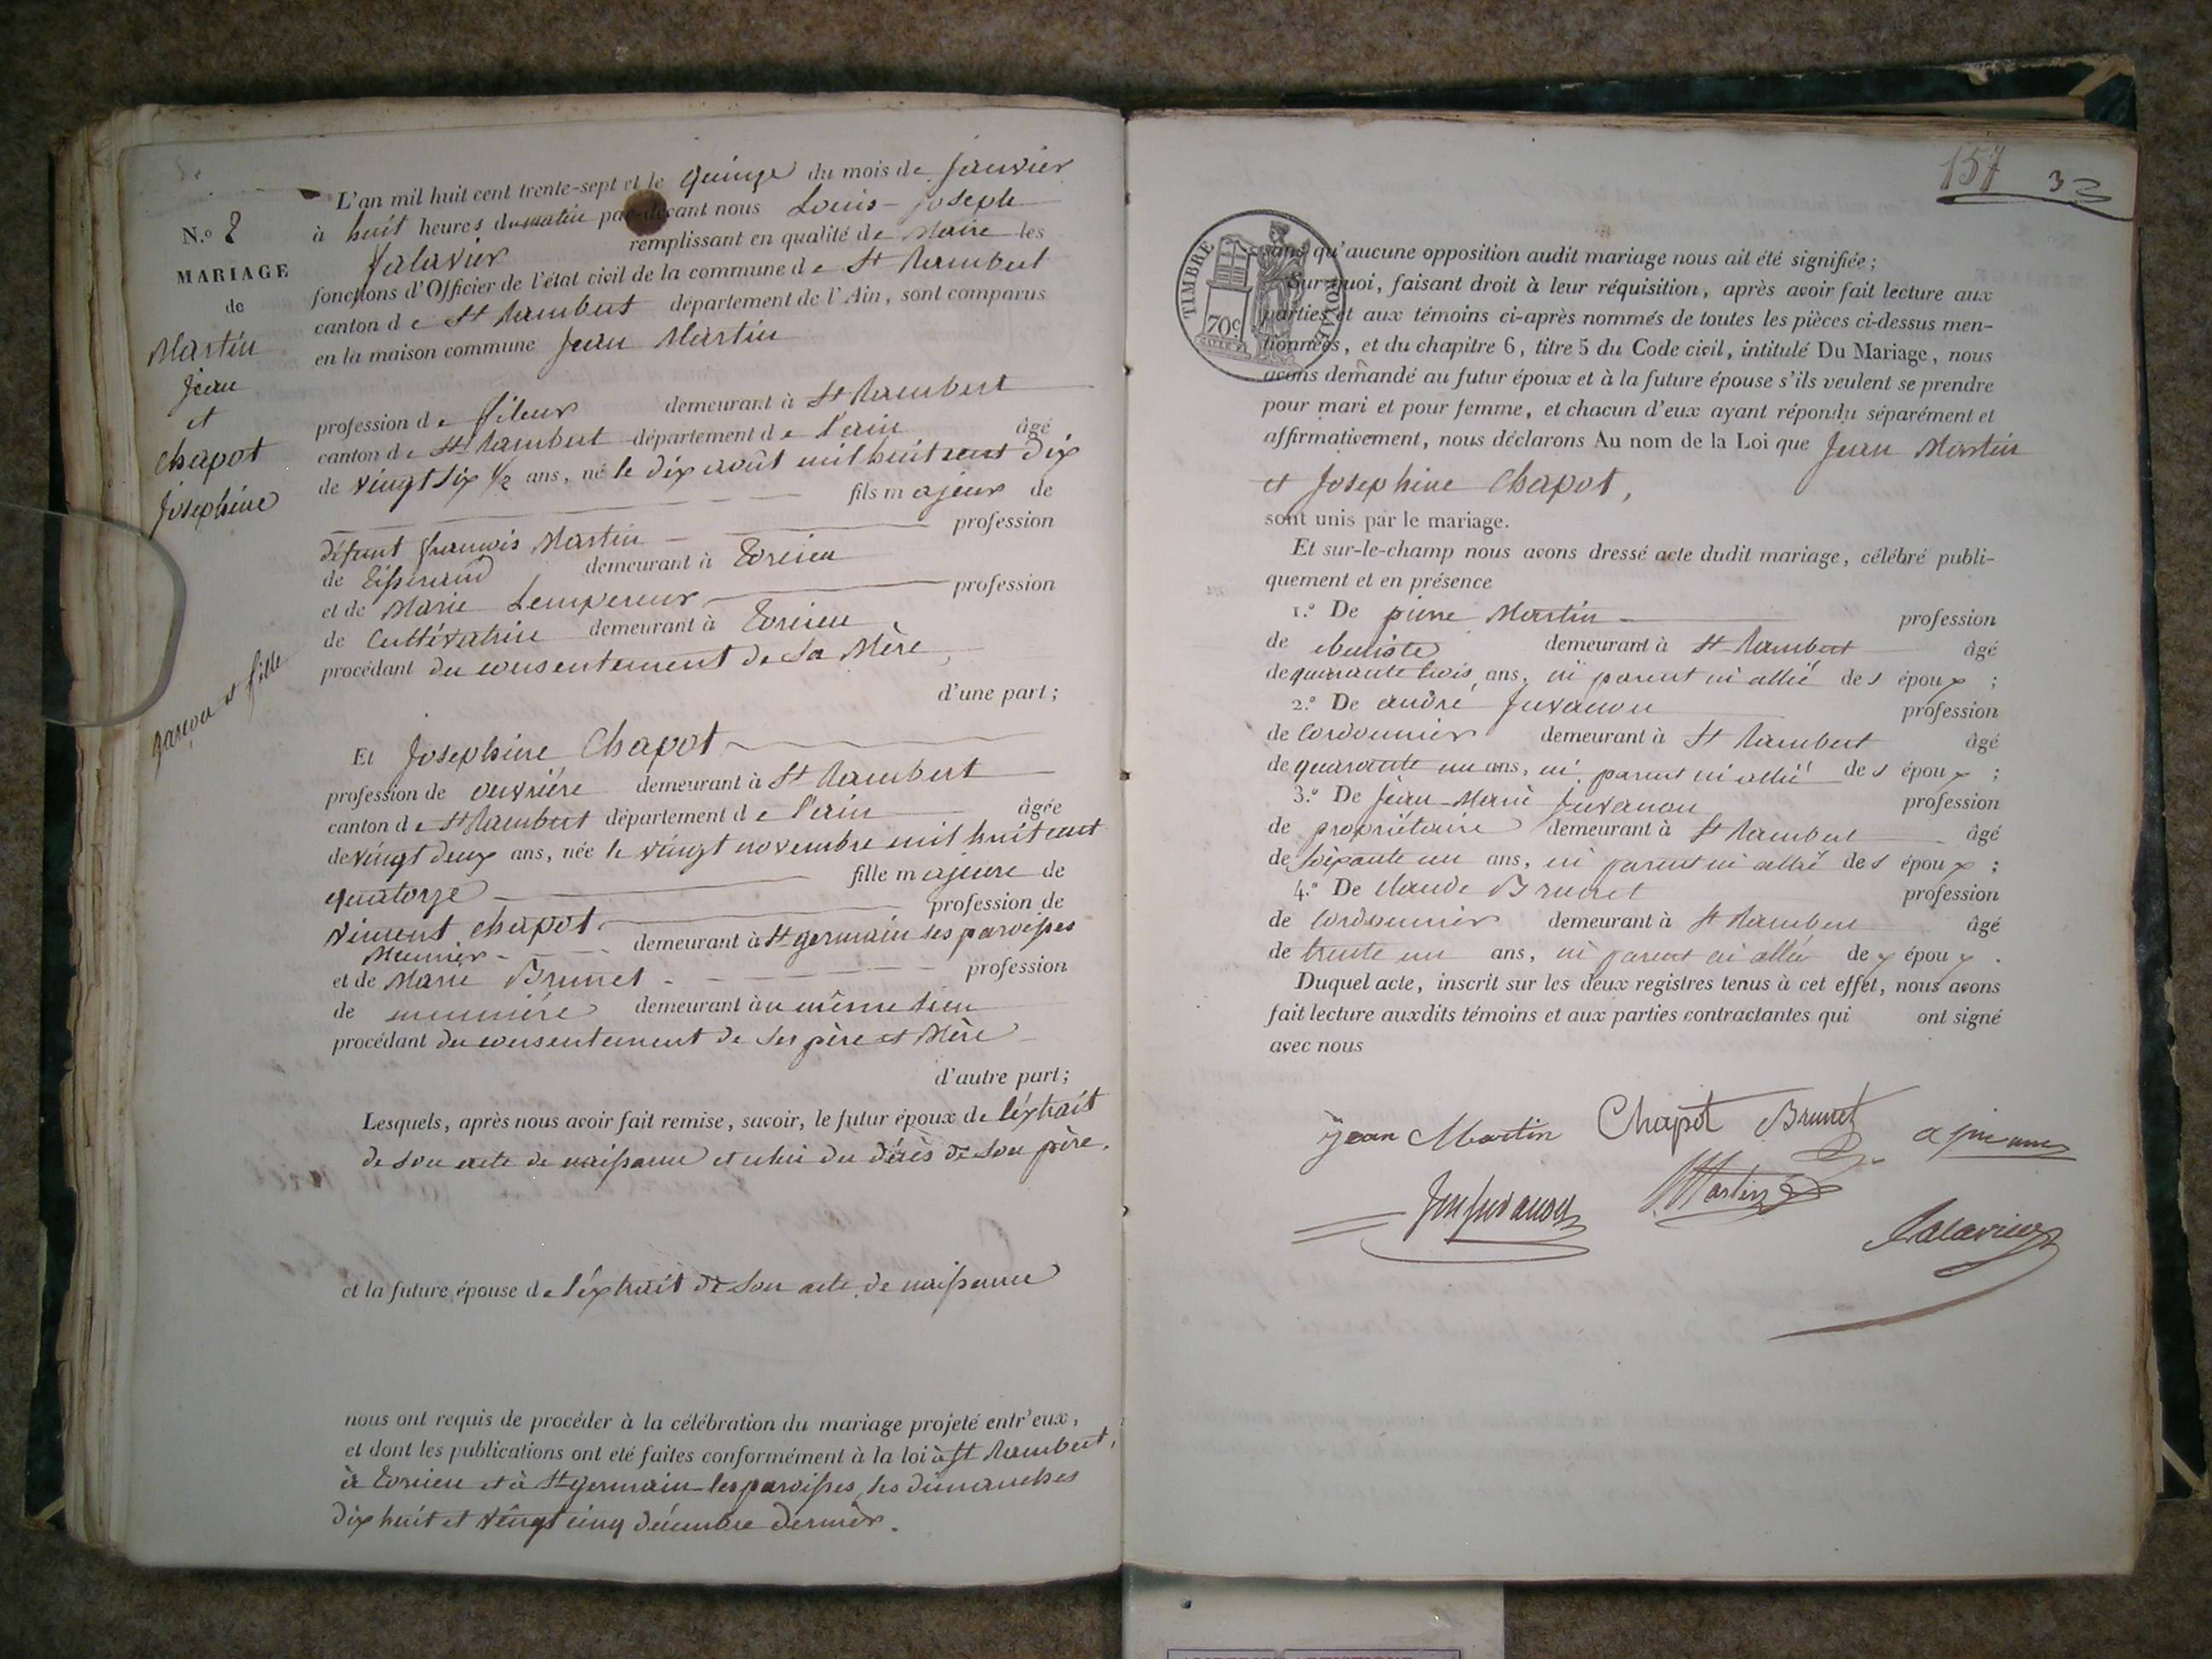 L'an mil huit cent trente-sept et le quinze du mois de Janvier
à huit heures du matin par-devant nous Louis-Joseph
Falavier remplissant en qualité de Maire les
fonctions d'Officier de l'état civil de la commune de St Rambert
canton de St Rambert département de l'Ain, sont comparus
en la maison commune Jean Martin
N.o 2
MARIAGE
de
Martin
Jean
et
Chapot
Josephine
garçon et fille
profession de fileur demeurant à St Rambert
canton de St Rambert département de l'ain âgé
de vingt six 1/2 ans, né le dix août mil huit cent dix
fils majeur de
défunt françois Martin profession
de Tisserand demeurant à Torcieu
et de Marie Lempereur profession
de Cultivatrice demeurant à Torcieu
procédant du consentement de sa Mère,
d'une part;
Et Josephine Chapot
profession de ouvrière demeurant à St Rambert
canton de St Rambert département de l'ain âgée
de vingt deux ans, née le vingt novembre mil huit cent
quatorze fille majeure de
Vincent Chapot profession de
Meunier demeurant à St germain les paroisses
et de Marie Brunet profession
de meunière demeurant au même lieu
procédant du consentement de ses père et Mère
d'autre part;
Lesquels, après nous avoir fait remise, savoir, le futur époux de l'éxtrait
de son acte de naissance et celui du décès de son père.
et la future épouse de l'éxtrait de son acte de naissance
nous ont requis de procéder à la célébration du mariage projeté entr'eux,
et dont les publications ont été faites conformément à la loi à St Rambert,
à Torcieu et à St germain-les paroisses, les dimanches
dix huit et vingt cinq décembre dernier.
157 32
TIMBRE ROYAL
70c
sans qu'aucune opposition audit mariage nous ait été signifiée;
Sur quoi, faisant droit à leur réquisition, après avoir fait lecture aux
parties et aux témoins ci-après nommés de toutes les pièces ci-dessus men-
tionnées, et du chapitre 6, titre 5 du Code civil, intitulé Du Mariage, nous
avons demandé au futur époux et à la future épouse s'ils veulent se prendre
pour mari et pour femme, et chacun d'eux ayant répondu séparément et
affirmativement, nous déclarons Au nom de la Loi que Jean Martin
et Josephine Chapot,
sont unis par le mariage.
Et sur-le-champ nous avons dressé acte dudit mariage, célébré publi-
quement et en présence
1.o De pierre Martin profession
de ebeniste demeurant à St Rambert âgé
de quarante trois ans, ni parent ni allié des époux;
2.o De andré Juvanon profession
de Cordonnier demeurant à St Rambert âgé
de quarante un ans, ni parent ni allié des époux;
3.o De Jean-Marie Juvanon profession
de propriétaire demeurant à St Rambert âgé
de soixante un ans, ni parent ni allié des époux;
4.o De Claude Brunet profession
de Cordonnier demeurant à St Rambert âgé
de trente un ans, ni parent ni allié des époux.
Duquel acte, inscrit sur les deux registres tenus à cet effet, nous avons
fait lecture auxdits témoins et aux parties contractantes qui ont signé
avec nous
jean Martin Chapot Brunet
Juvanon Martin
Falavier